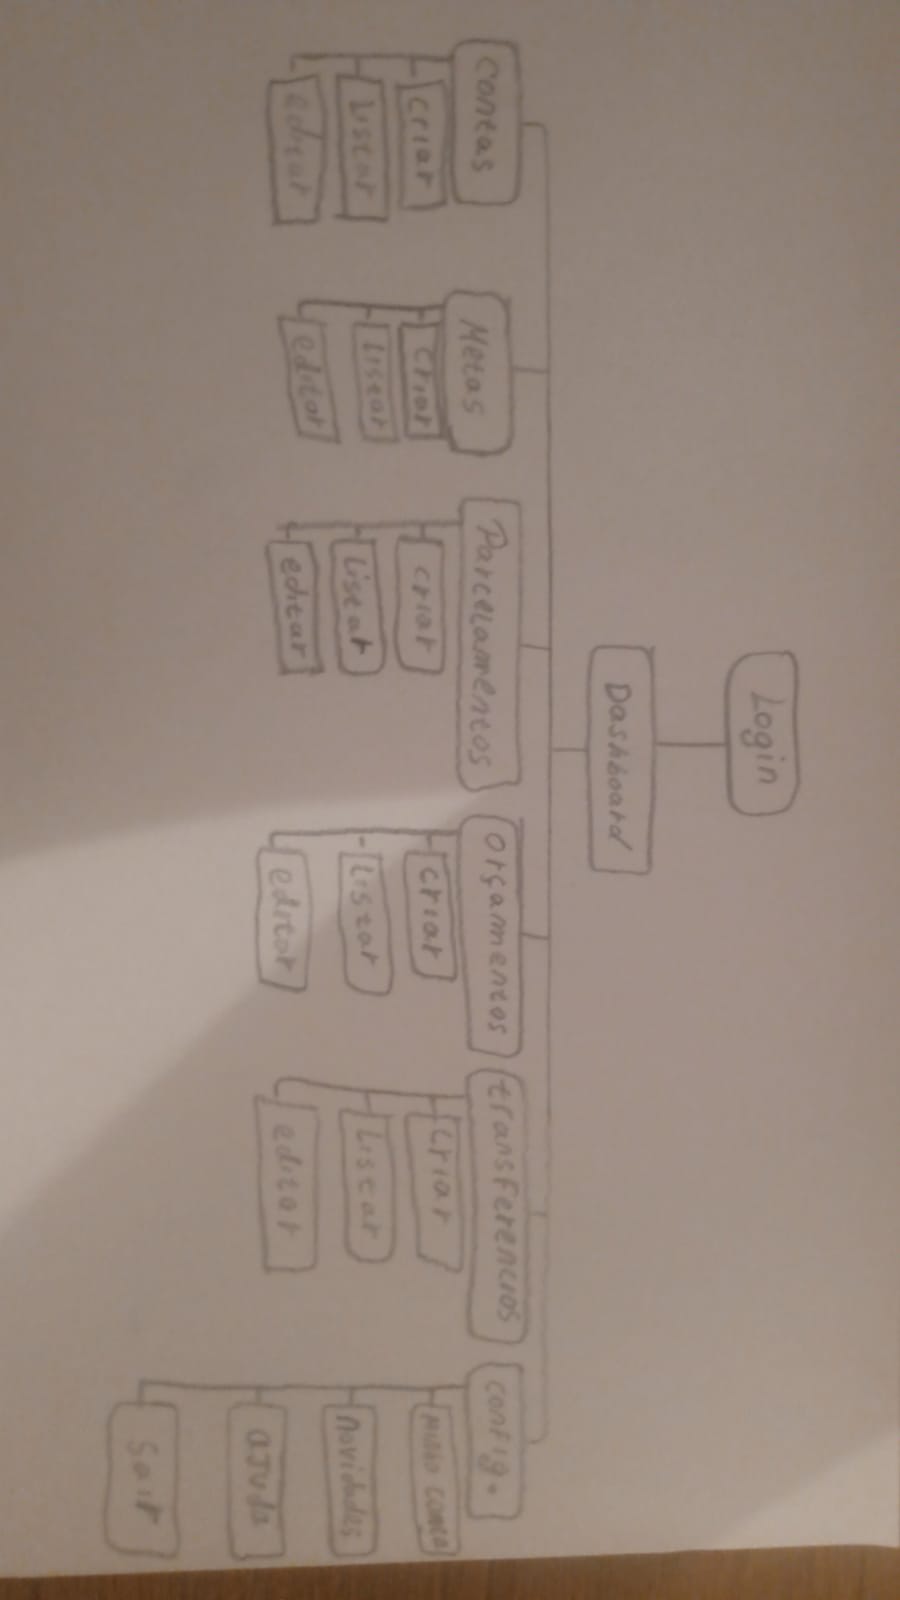 Login
Dashboard
contas
criar
Listar
editar
Metas
criar
Listar
editar
Parcelamentos
criar
Listar
editar
orçamentos
criar
Listar
editar
transferencias
criar
Listar
editar
config.
minha conta
novidades
ajuda
Sair